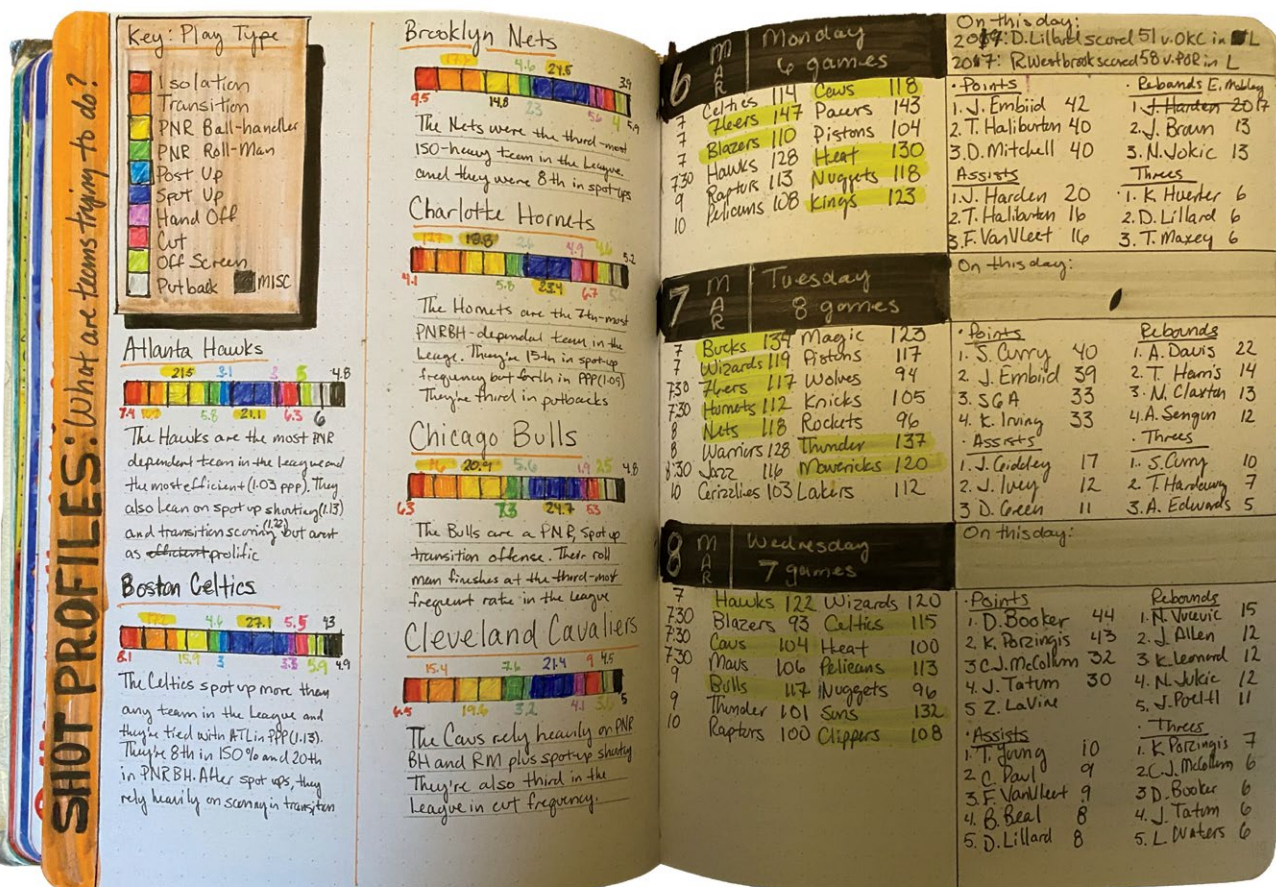 SHOT PROFILES: What are teams trying to do?
Key: Play Type
Isolation
Transition
PNR Ball-handler
PNR Roll-Man
Post Up
Spot Up
Hand Off
Cut
Off Screen
Putback MISC
Atlanta Hawks
21.5 3.1 3 5 4.8
7.4 5.8 21.1 6.3 6
The Hawks are the most PNR
dependent team in the League and
the most efficient (1.03 ppp). They
also lean on spot up shooting (1.13)
and transition scoring (1.22) but arent
as efficient prolific
Boston Celtics
17.2 4.6 27.1 5.5 4.3
8.1 15.9 3 3.3 5.9 4.9
The Celtics spot up more then
any team in the League and
they're tied with ATL in PPP (1.13).
They're 8th in ISO % and 20th
in PNRBH. After spot ups, they
rely heavily on scoring in transiton
Brooklyn Nets
4.6 24.5 3.9
9.5 14.8 2.3 5.6 4 5.9
The Nets were the third-most
ISO-heavy team in the League
and they were 8th in spot-ups
Charlotte Hornets
17.7 18.8 2.6 4.9 5.2
4.1 5.8 23.4 6.7
The Hornets are the 7th-most
PNRBH-dependent team in the
Leage. They're 15th in spot-up
frequency but forth in PPP (1.05)
They're third in putbacks
Chicago Bulls
16 20.9 5.6 1.9 2.5 4.8
6.3 7.3 24.7 5.3
The Bulls are a PNR, Spot up
transition offense. Their roll
man finishes at the third-most
frequent rate in the League
Cleveland Cavaliers
15.4 7.6 21.4 9 4.5
6.5 19.6 3.2 4.1 5
The Cavs rely heavily on PNR
BH and RM plus spot-up shooty
They're also third in the
League in cut frequency.
6 MAR Monday
6 games
7 Celtics 114 Cavs 118
7 76ers 147 Pacers 143
7 Blazers 110 Pistons 104
7:30 Hawks 128 Heat 130
9 Raptors 113 Nuggets 118
10 Pelicans 108 Kings 123
On this day:
2017: D. Lillard scored 51 v. OKC in L
2017: R. Westbrook scored 58 v. POR in L
· Points
1. J. Embiid 42
2. T. Haliburton 40
3. D. Mitchell 40
· Rebounds E. Mobley
1. J. Harden 20 17
2. J. Brown 13
3. N. Jokic 13
Assists
1. J. Harden 20
2. T. Haliburton 16
3. F. VanVleet 16
Threes
1. K Huerter 6
2. D. Lillard 6
3. T. Maxey 6
7 MAR Tuesday
8 games
7 Bucks 134 Magic 123
7 Wizards 119 Pistons 117
7:30 76ers 117 Wolves 94
7:30 Hornets 112 Knicks 105
8 Nets 118 Rockets 96
8 Warriors 128 Thunder 137
8:30 Jazz 116 Mavericks 120
10 Gerizzlies 103 Lakers 112
On this day:
· Points
1. S. Curry 40
2. J. Embiid 39
3. SGA 33
4. K. Irving 33
Rebounds
1. A. Davis 22
2. T. Harris 14
3. N. Claxton 13
4. A. Sengun 12
· Assists
1. J. Giddey 17
2. J. Ivey 12
3 D. Green 11
· Threes
1. S. Curry 10
2. T. Hardaway 7
3. A. Edwards 5
8 MAR Wednesday
7 games
7 Hawks 122 Wizards 120
7:30 Blazers 93 Celtics 115
7:30 Cavs 104 Heat 100
7:30 Mavs 106 Pelicans 113
9 Bulls 117 Nuggets 96
9 Thunder 101 Suns 132
10 Raptors 100 Clippers 108
On this day:
· Points
1. D. Booker 44
2. K. Porzingis 43
3 C.J. McCollum 32
4. J. Tatum 30
5 Z. LaVine
Rebounds
1. N. Vucevic 15
2. J. Allen 12
3. K. Leonard 12
4. N. Jokic 12
5. J. Poeltl 11
· Assists
1. T. Young 10
2 C. Paul 9
3. F. VanVleet 9
4. B. Beal 8
5. D. Lillard 8
· Threes
1. K. Porzingis 7
2. C.J. McCollum 6
3 D. Booker 6
4. J. Tatum 6
5. L. Waters 6